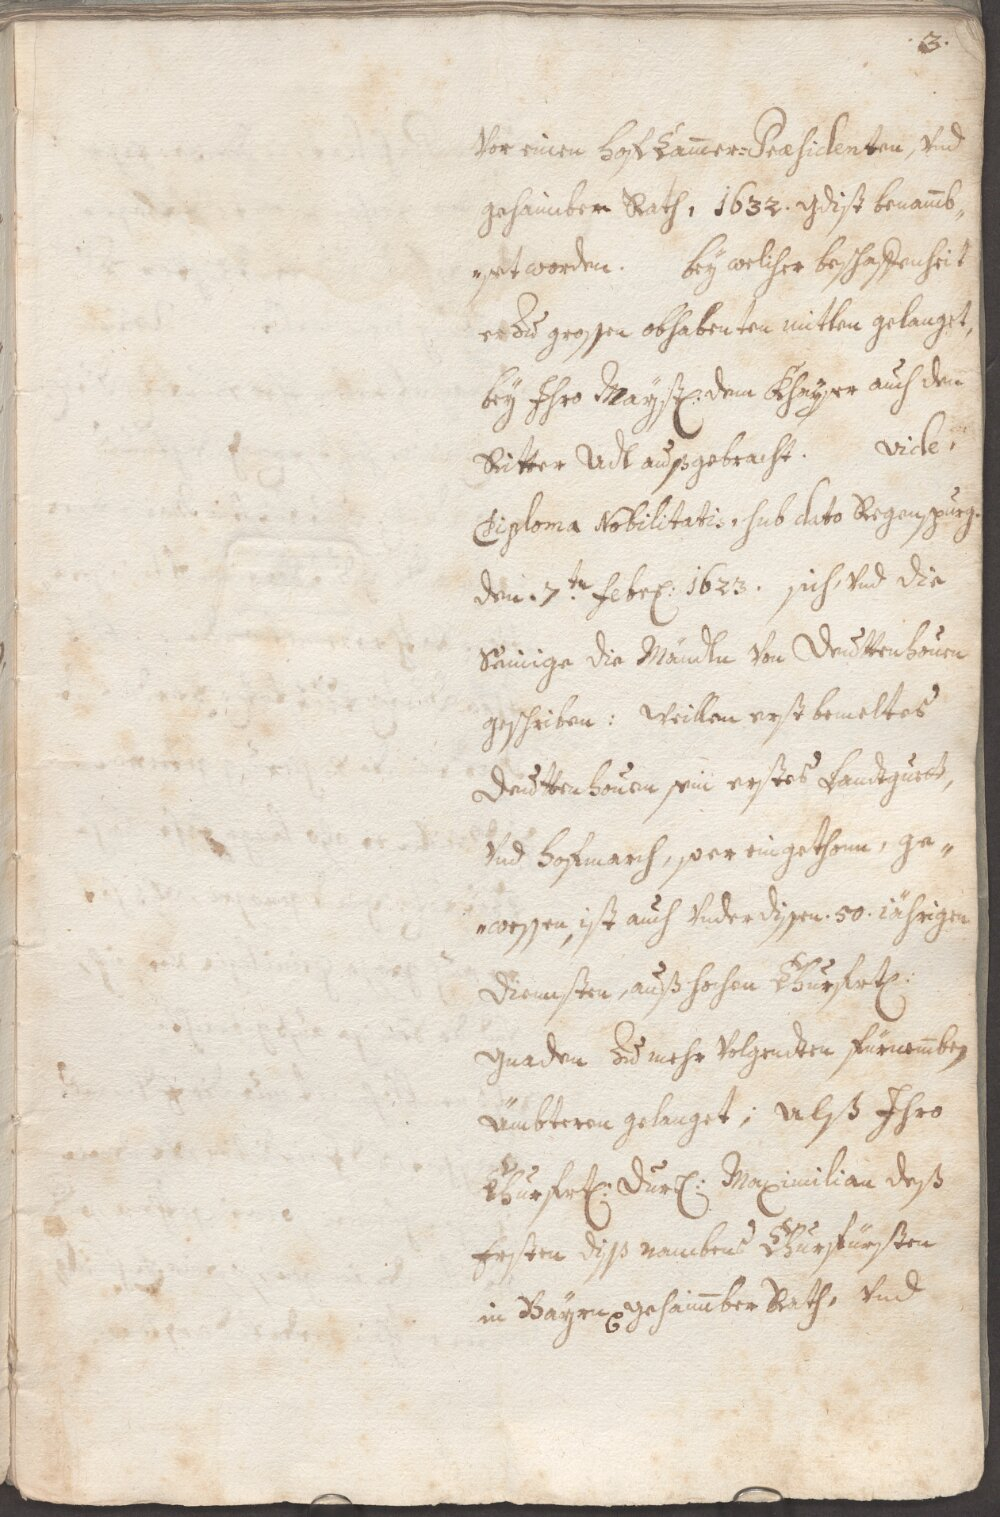 .3.
Vor einen HofCam̅er=Præsidenten, Vnd
gehaimben Rath, 1632. gdist benam̅b„
„set worden. bey welcher beschaffenheit
er Zu grossen obhabenten mitlen gelanget,
bey Ihro Mayst: dem Khayser auch den
Ritter Adl außgebracht. vide,
Diploma Nobilitatis, sub dato Regenspurg.
den. 7.ten febr: 1623. sich, Vnd die
Seinige die Mändln Von Deüttenhouen
geschriben: Weillen erst bemeltes
Deüttenhouen sein erstes Landtguett,
Vnd Hofmarch, so er eingethonn, ge„
„wessen, ist auch Vnder dissen. 50. iährigen
diennsten, auß hochen Churfrt:
Gnaden Zu mehr Volgendten fürnem̅ben
Ämbteren gelanget; Alß Ihro
Churfrt: Dur: Maximilian deß
Ersten diß nambens Churfürsten
in Bayrn gehaim̅ber Rath, Vnd